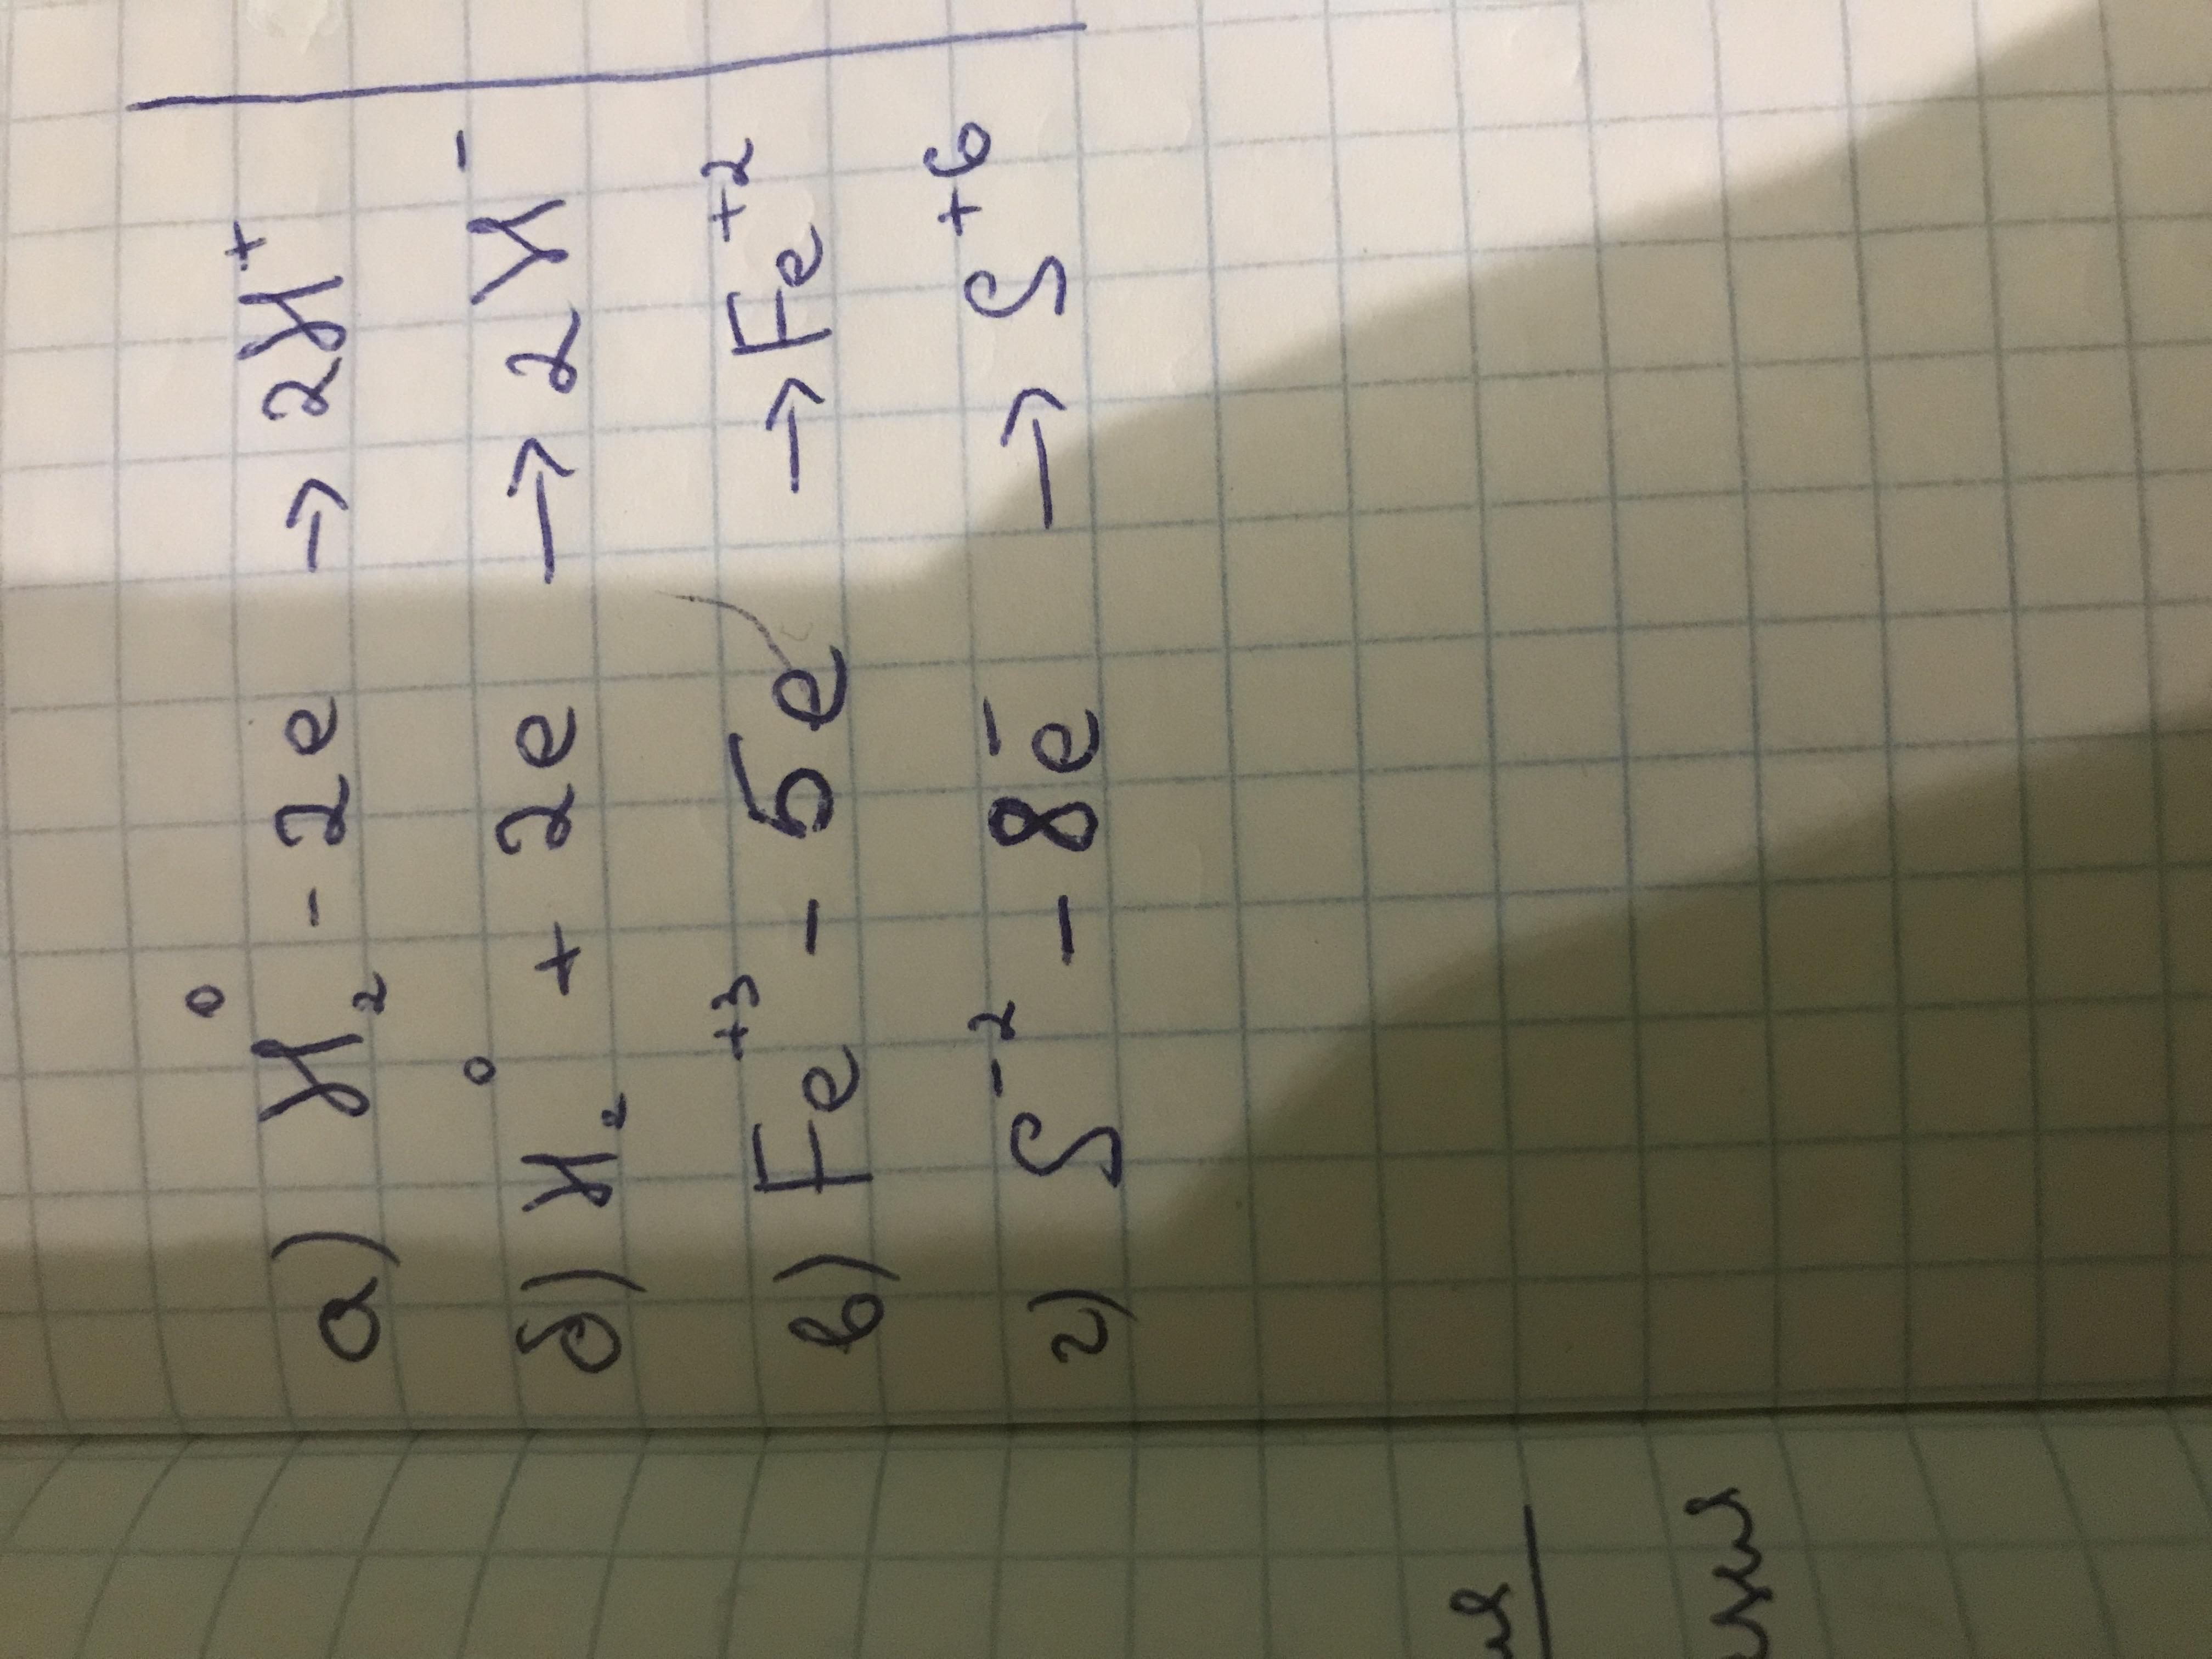 а) H₂⁰ - 2e → 2H⁺
б) H₂⁰ + 2e → 2H⁻
в) Fe⁺³ - 5e → Fe⁺²
г) S⁻² - 8e⁻ → S⁺⁶